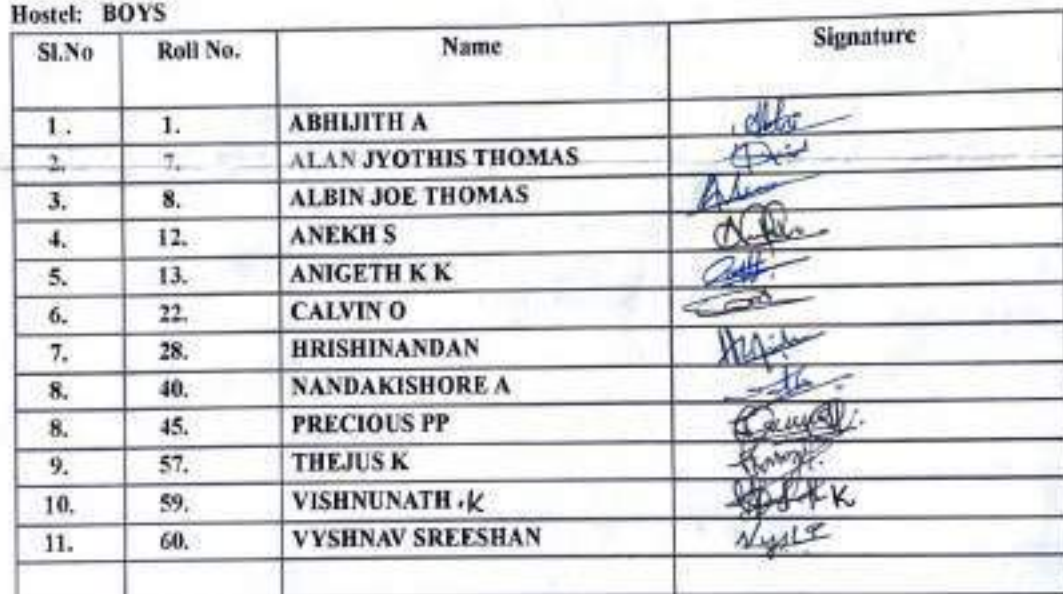 Hostel: BOYS
Sl.No Roll No. Name Signature
1. 1. ABHIJITH A
2. 7. ALAN JYOTHIS THOMAS
3. 8. ALBIN JOE THOMAS
4. 12. ANEKH S
5. 13. ANIGETH K K
6. 22. CALVIN O
7. 28. HRISHINANDAN
8. 40. NANDAKISHORE A
8. 45. PRECIOUS PP
9. 57. THEJUS K
10. 59. VISHNUNATH .K
11. 60. VYSHNAV SREESHAN